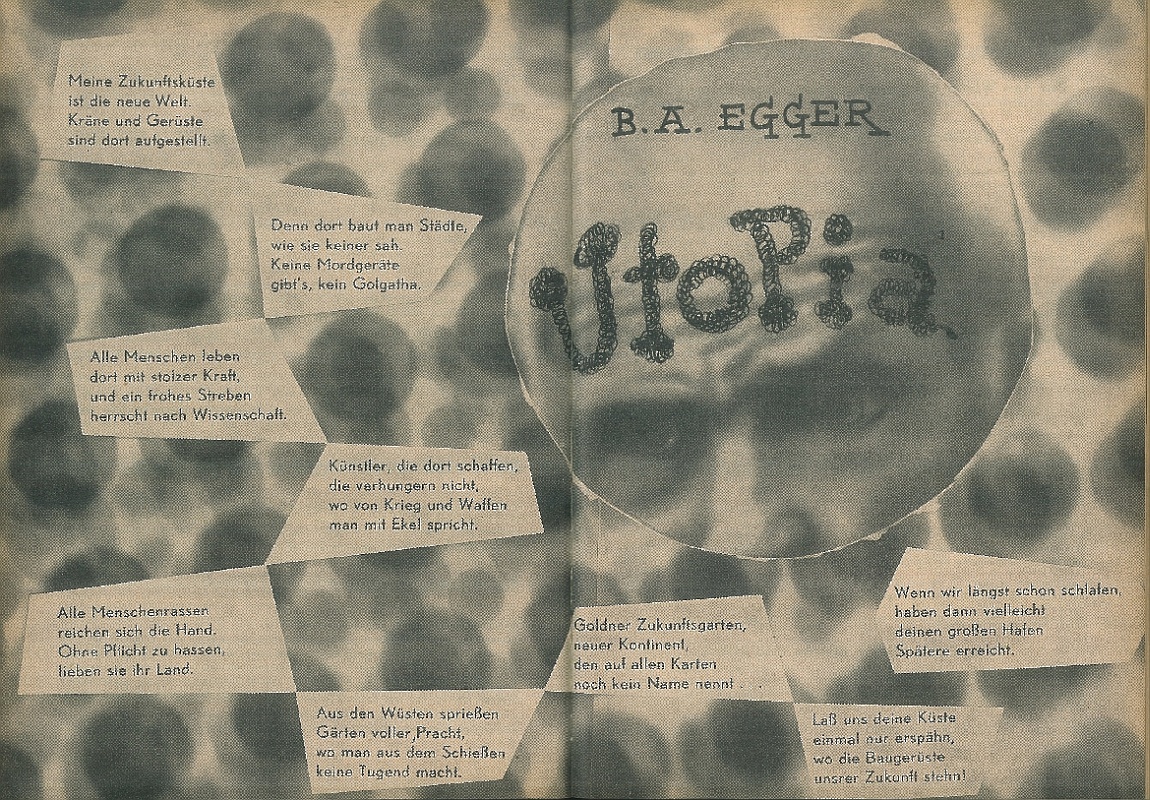 B.A. EGGER
Utopia
Meine Zukunftsküste
ist die neue Welt.
Kräne und Gerüste
sind dort aufgestellt.
Denn dort baut man Städte,
wie sie keiner sah.
Keine Mordgeräte
gibt's, kein Golgatha.
Alle Menschen leben
dort mit stolzer Kraft,
und ein frohes Streben
herrscht nach Wissenschaft.
Künstler, die dort schaffen,
die verhungern nicht,
wo von Krieg und Waffen
man mit Ekel spricht.
Alle Menschenrassen
reichen sich die Hand.
Ohne Pflicht zu hassen,
lieben sie ihr Land.
Aus den Wüsten sprießen
Gärten voller Pracht,
wo man aus dem Schießen
keine Tugend macht.
Goldner Zukunftsgarten,
neuer Kontinent,
den auf allen Karten
noch kein Name nennt . . .
Laß uns deine Küste
einmal nur erspähn,
wo die Baugerüste
unsrer Zukunft stehn!
Wenn wir längst schon schlafen,
haben dann vielleicht
deinen großen Hafen
Spätere erreicht.